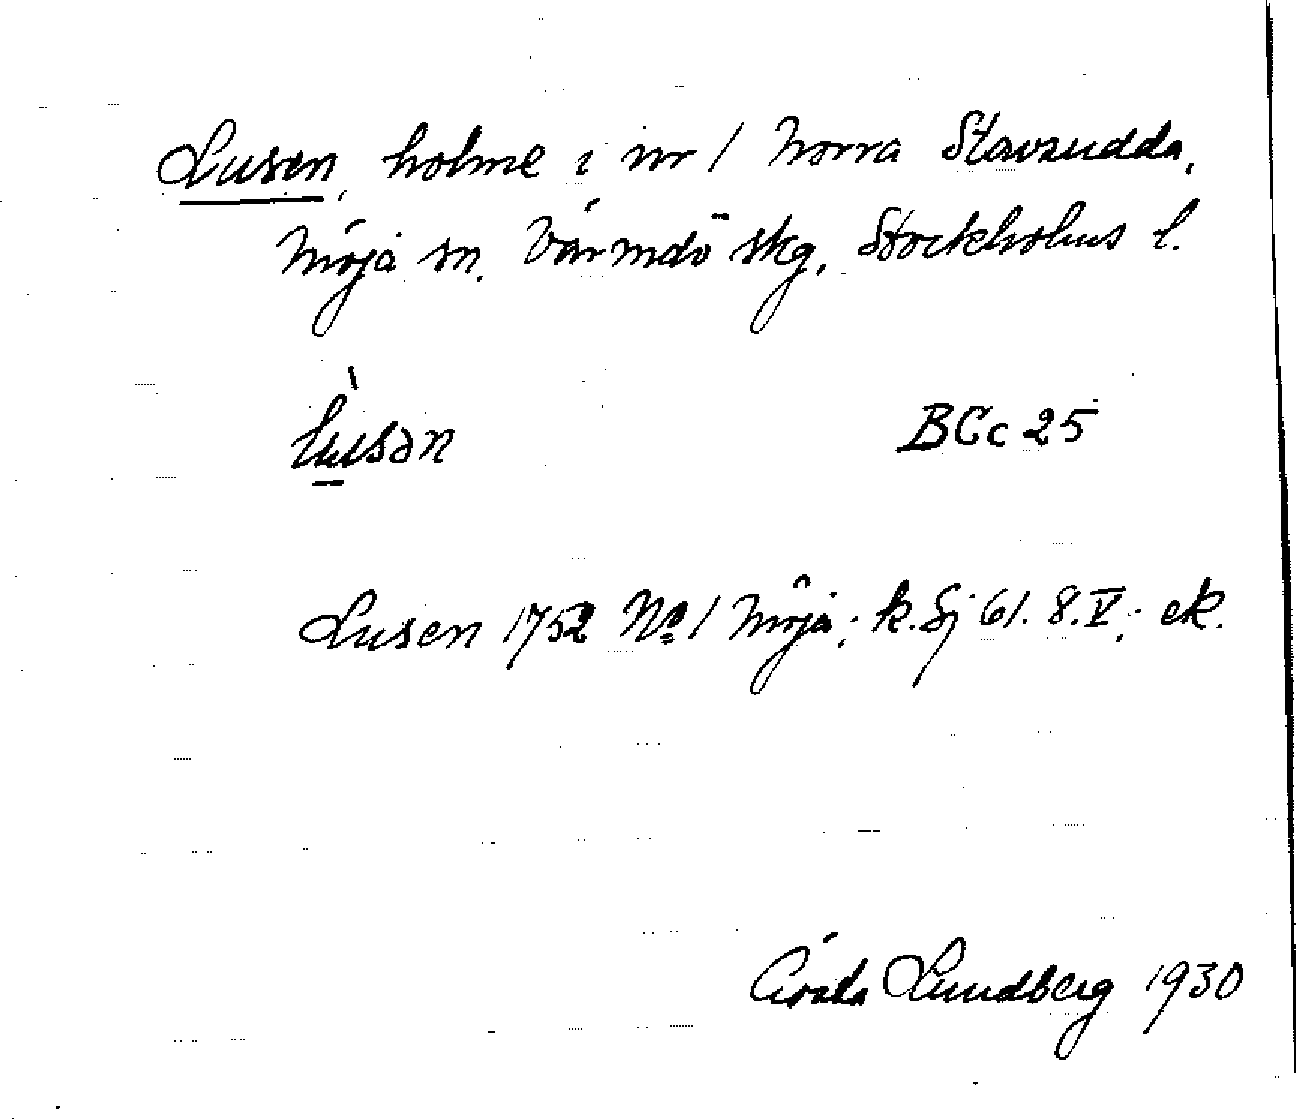 Lusen, holme i nr 1 Norra Stavsudda,
Möja sn. Värmdö skg, Stockholms l.
lusən BCc 25
Lusen 1752 No 1 Möja; k. Sj 61. 8. V; ek.
Gösta Lundberg 1930